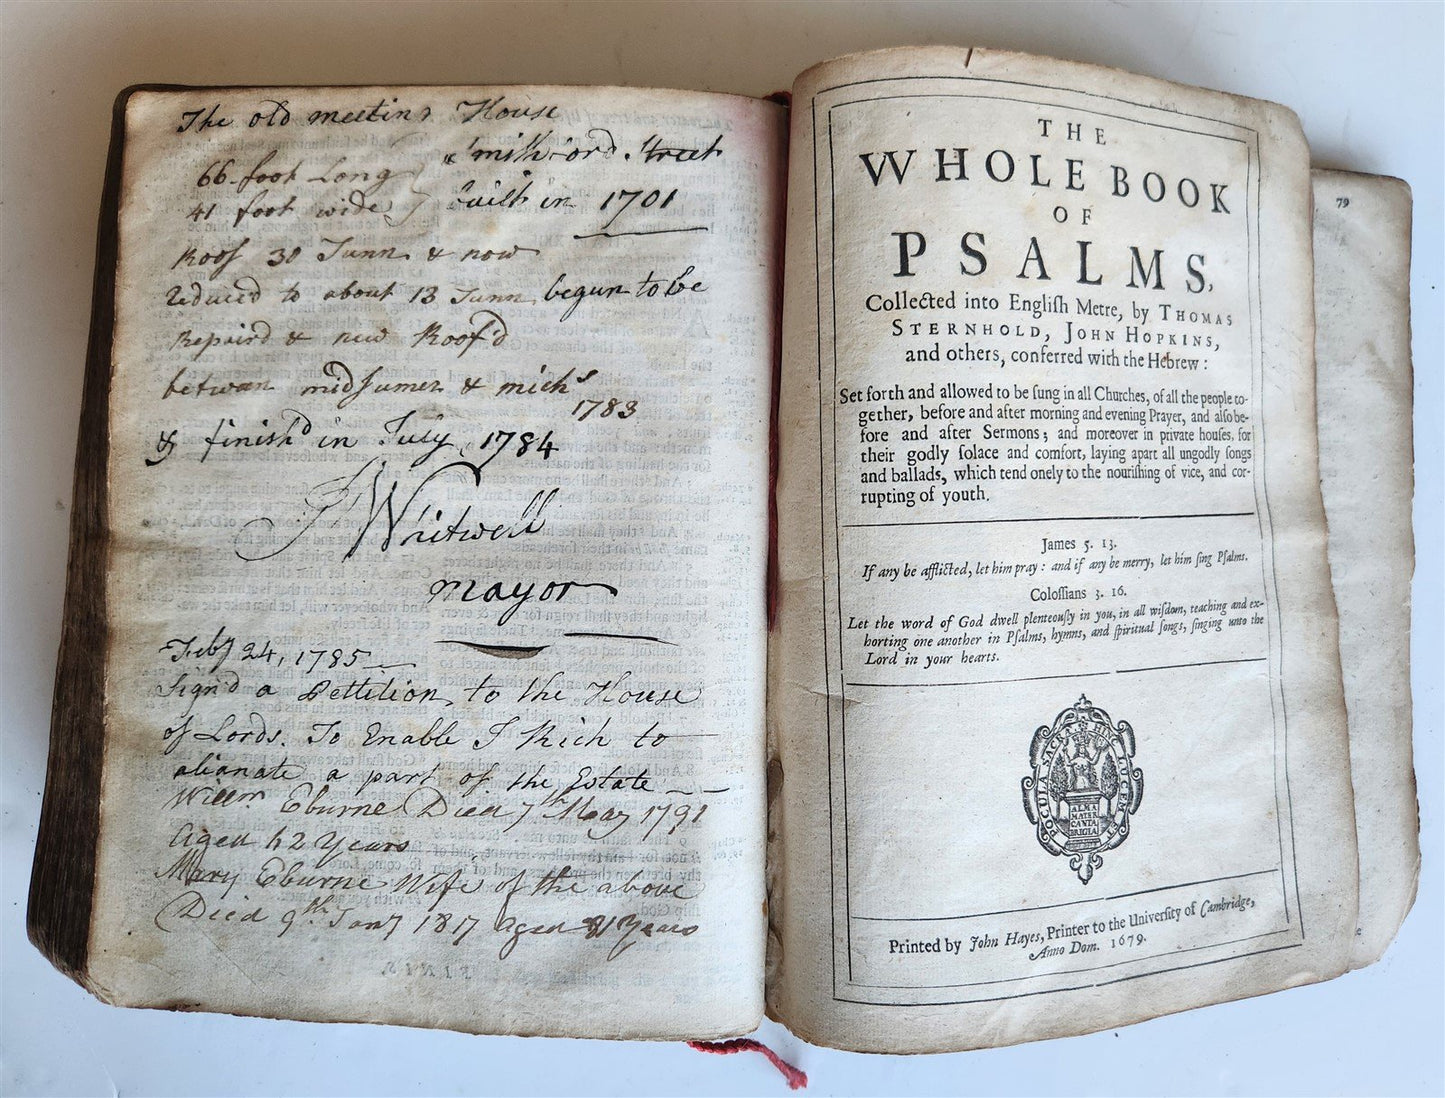 The old meeting House
66 foot Long
41 foot wide
in mithford Street
built in 1701
Roof 30 Tunn & now
reduced to about 13 Tunn, begun to be
Repaird & new Roof'd
between midsumer & michs
1783
& finish'd in July 1784
J Whitwell
mayor
Feby 24, 1785
Sign'd a Pettition, to the House
of Lords. To Enable J Rich to
alianate a part of the Estate
Willm Eburne Died 7th May 1791
aged 42 Years
Mary Eburne Wife of the above
Died 9th Jany 1817 aged 81 Years
79
THE
WHOLE BOOK
OF
PSALMS,
Collected into Engliſh Metre, by THOMAS
STERNHOLD, JOHN HOPKINS,
and others, conferred with the Hebrew:
Set forth and allowed to be ſung in all Churches, of all the people to-
gether, before and after morning and evening Prayer, and alſo be-
fore and after Sermons; and moreover in private houſes, for
their godly ſolace and comfort, laying apart all ungodly ſongs
and ballads, which tend onely to the nouriſhing of vice, and cor-
rupting of youth.
James 5. 13.
If any be afflicted, let him pray: and if any be merry, let him ſing Pſalms.
Coloſſians 3. 16.
Let the word of God dwell plenteouſly in you, in all wiſdom, teaching and ex-
horting one another in Pſalms, hymns, and ſpiritual ſongs, ſinging unto the
Lord in your hearts.
HINC LUCEM ET POCULA SACRA
ALMA
MATER
CANTA
BRIGIA
Printed by John Hayes, Printer to the Univerſity of Cambridge,
Anno Dom. 1679.